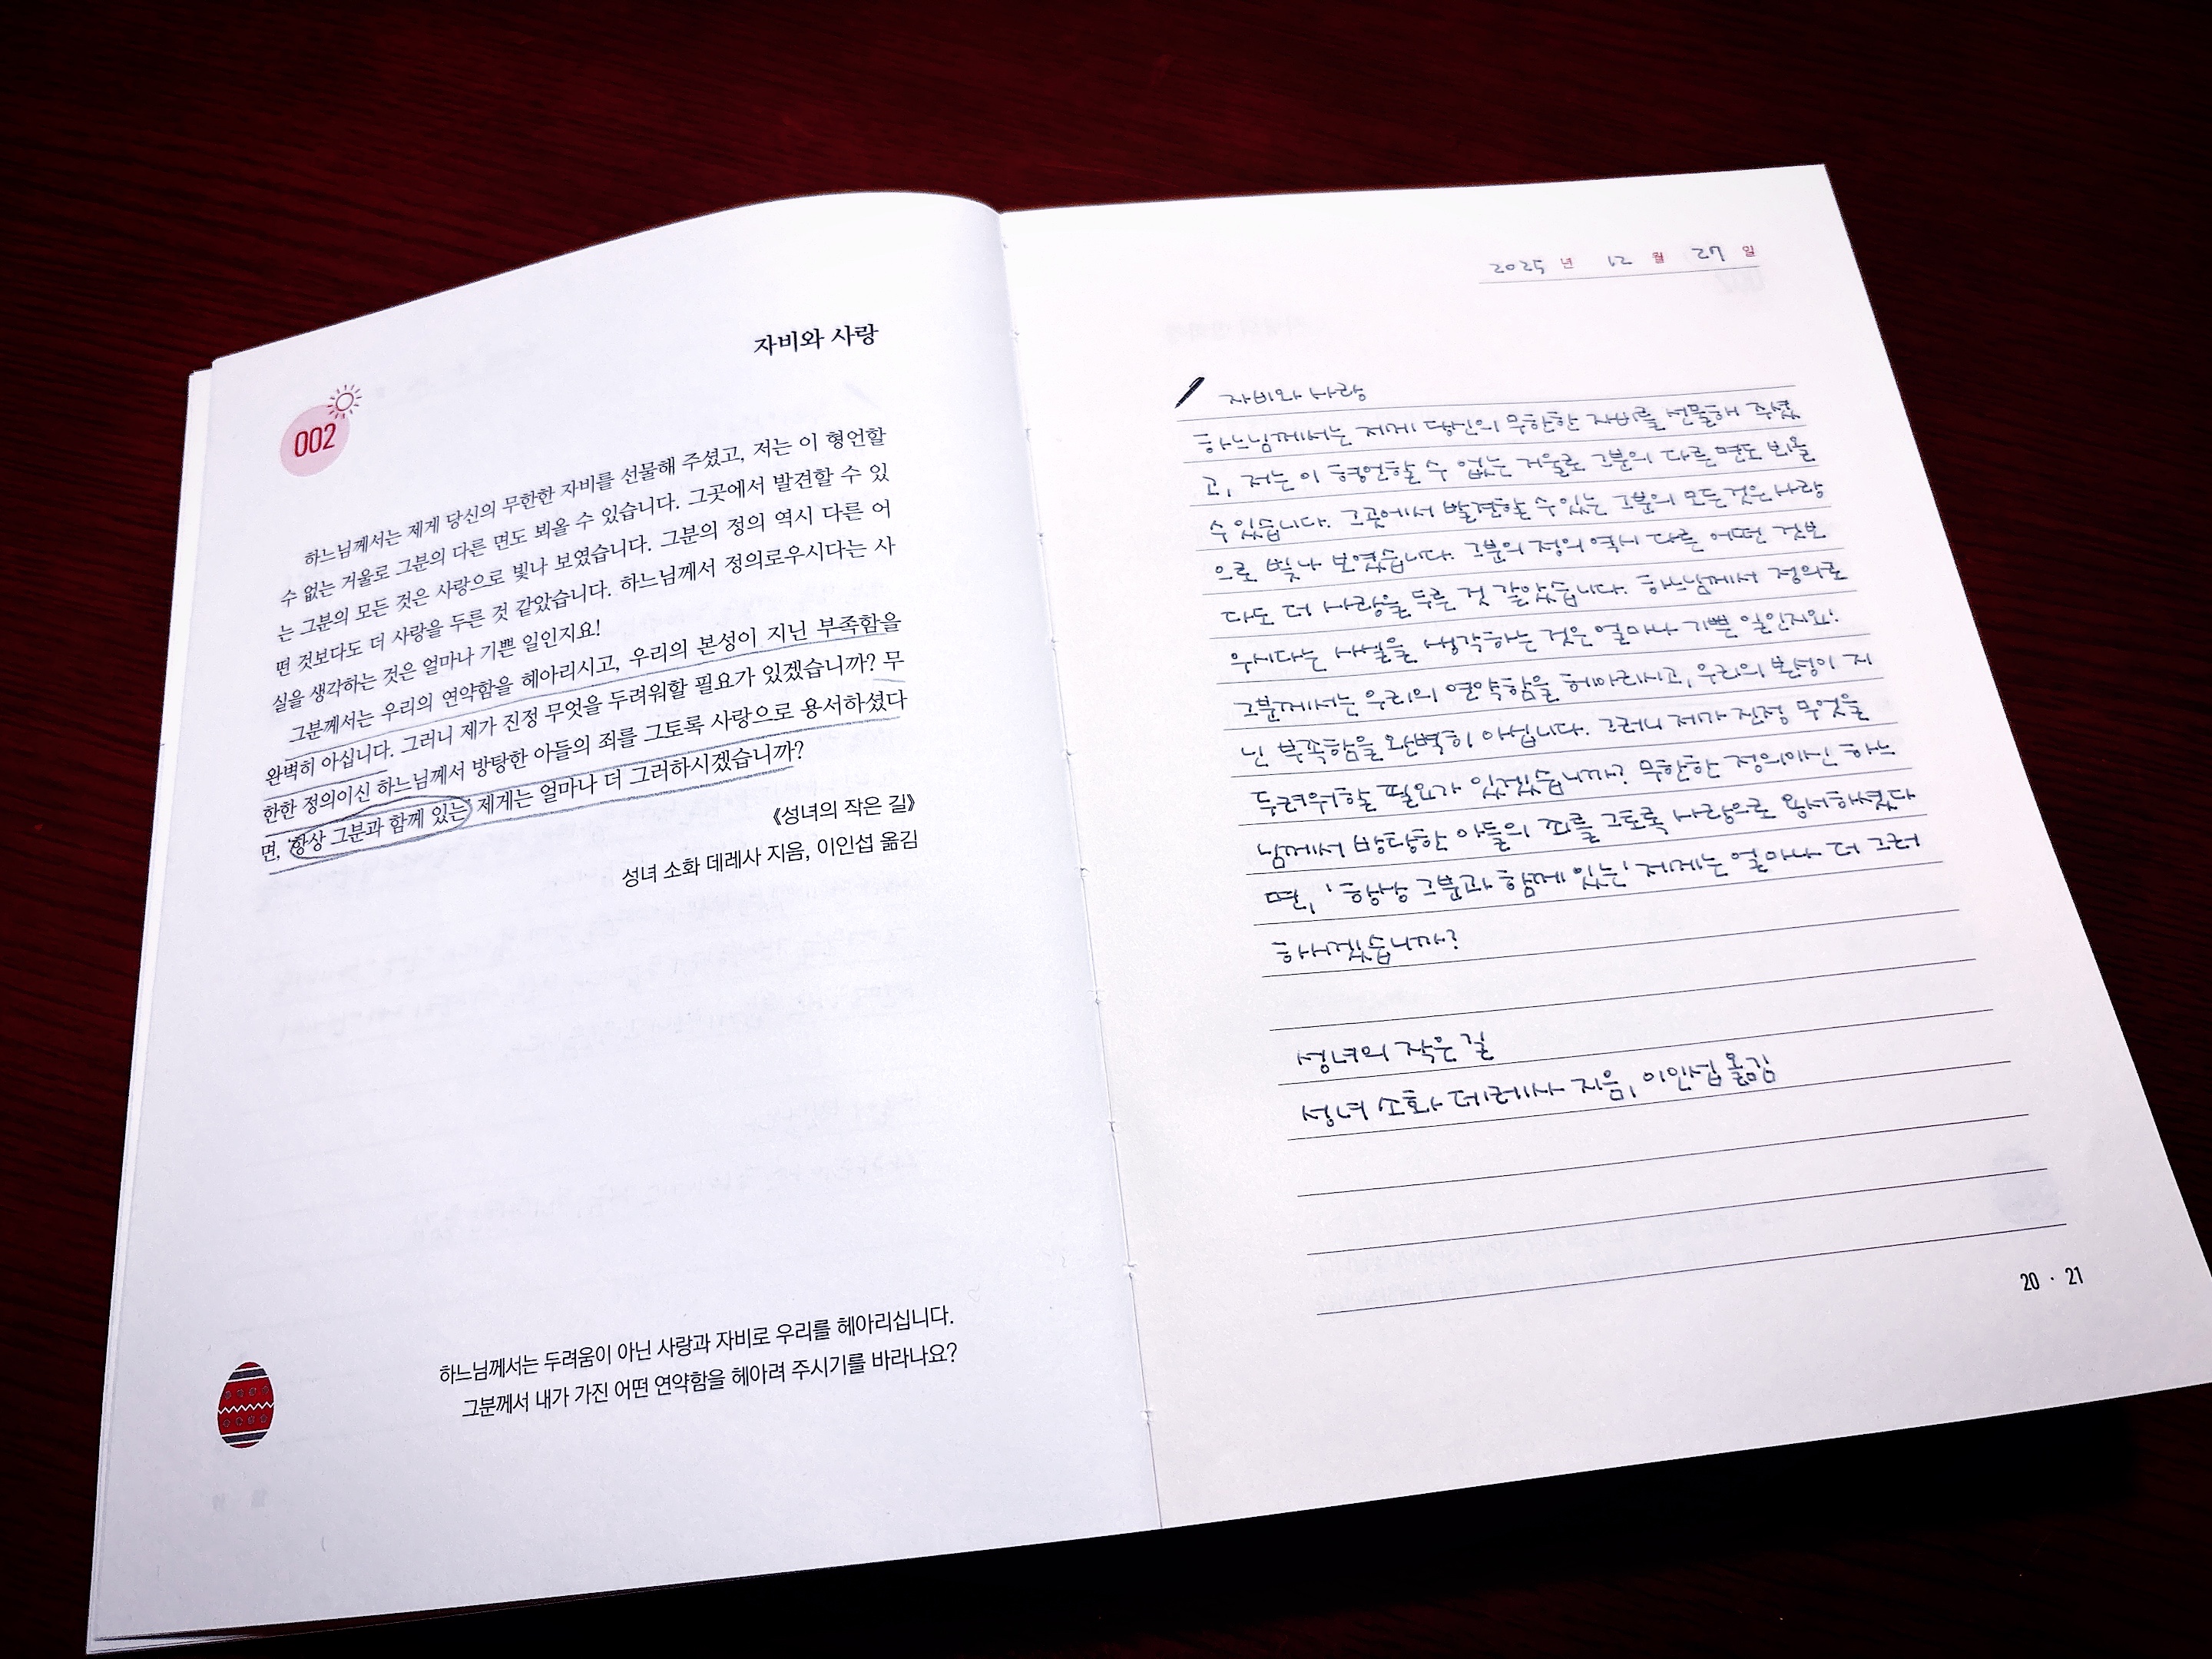 자비와 사랑
002
하느님께서는 제게 당신의 무한한 자비를 선물해 주셨고, 저는 이 형언할
수 없는 거울로 그분의 다른 면도 뵈올 수 있습니다. 그곳에서 발견할 수 있
는 그분의 모든 것은 사랑으로 빛나 보였습니다. 그분의 정의 역시 다른 어
떤 것보다도 더 사랑을 두른 것 같았습니다. 하느님께서 정의로우시다는 사
실을 생각하는 것은 얼마나 기쁜 일인지요!
그분께서는 우리의 연약함을 헤아리시고, 우리의 본성이 지닌 부족함을
완벽히 아십니다. 그러니 제가 진정 무엇을 두려워할 필요가 있겠습니까? 무
한한 정의이신 하느님께서 방탕한 아들의 죄를 그토록 사랑으로 용서하셨다
면, '항상 그분과 함께 있는' 제게는 얼마나 더 그러하시겠습니까?
《성녀의 작은 길》
성녀 소화 데레사 지음, 이인섭 옮김
하느님께서는 두려움이 아닌 사랑과 자비로 우리를 헤아리십니다.
그분께서 내가 가진 어떤 연약함을 헤아려 주시기를 바라나요?
2025 년 12 월 27 일
자비와 사랑
하느님께서는 제게 당신의 무한한 자비를 선물해 주셨
고, 저는 이 형언할 수 없는 거울로 그분의 다른 면도 뵈올
수 있습니다. 그곳에서 발견할 수 있는 그분의 모든 것은 사랑
으로 빛나 보였습니다. 그분의 정의 역시 다른 어떤 것보
다도 더 사랑을 두른 것 같았습니다. 하느님께서 정의로
우시다는 사실을 생각하는 것은 얼마나 기쁜 일인지요!
그분께서는 우리의 연약함을 헤아리시고, 우리의 본성이 지
닌 부족함을 완벽히 아십니다. 그러니 제가 진정 무엇을
두려워할 필요가 있겠습니까? 무한한 정의이신 하느
님께서 방탕한 아들의 죄를 그토록 사랑으로 용서하셨다
면, '항상 그분과 함께 있는' 제게는 얼마나 더 그러
하시겠습니까?
성녀의 작은 길
성녀 소화 데레사 지음, 이인섭 옮김
20 · 21